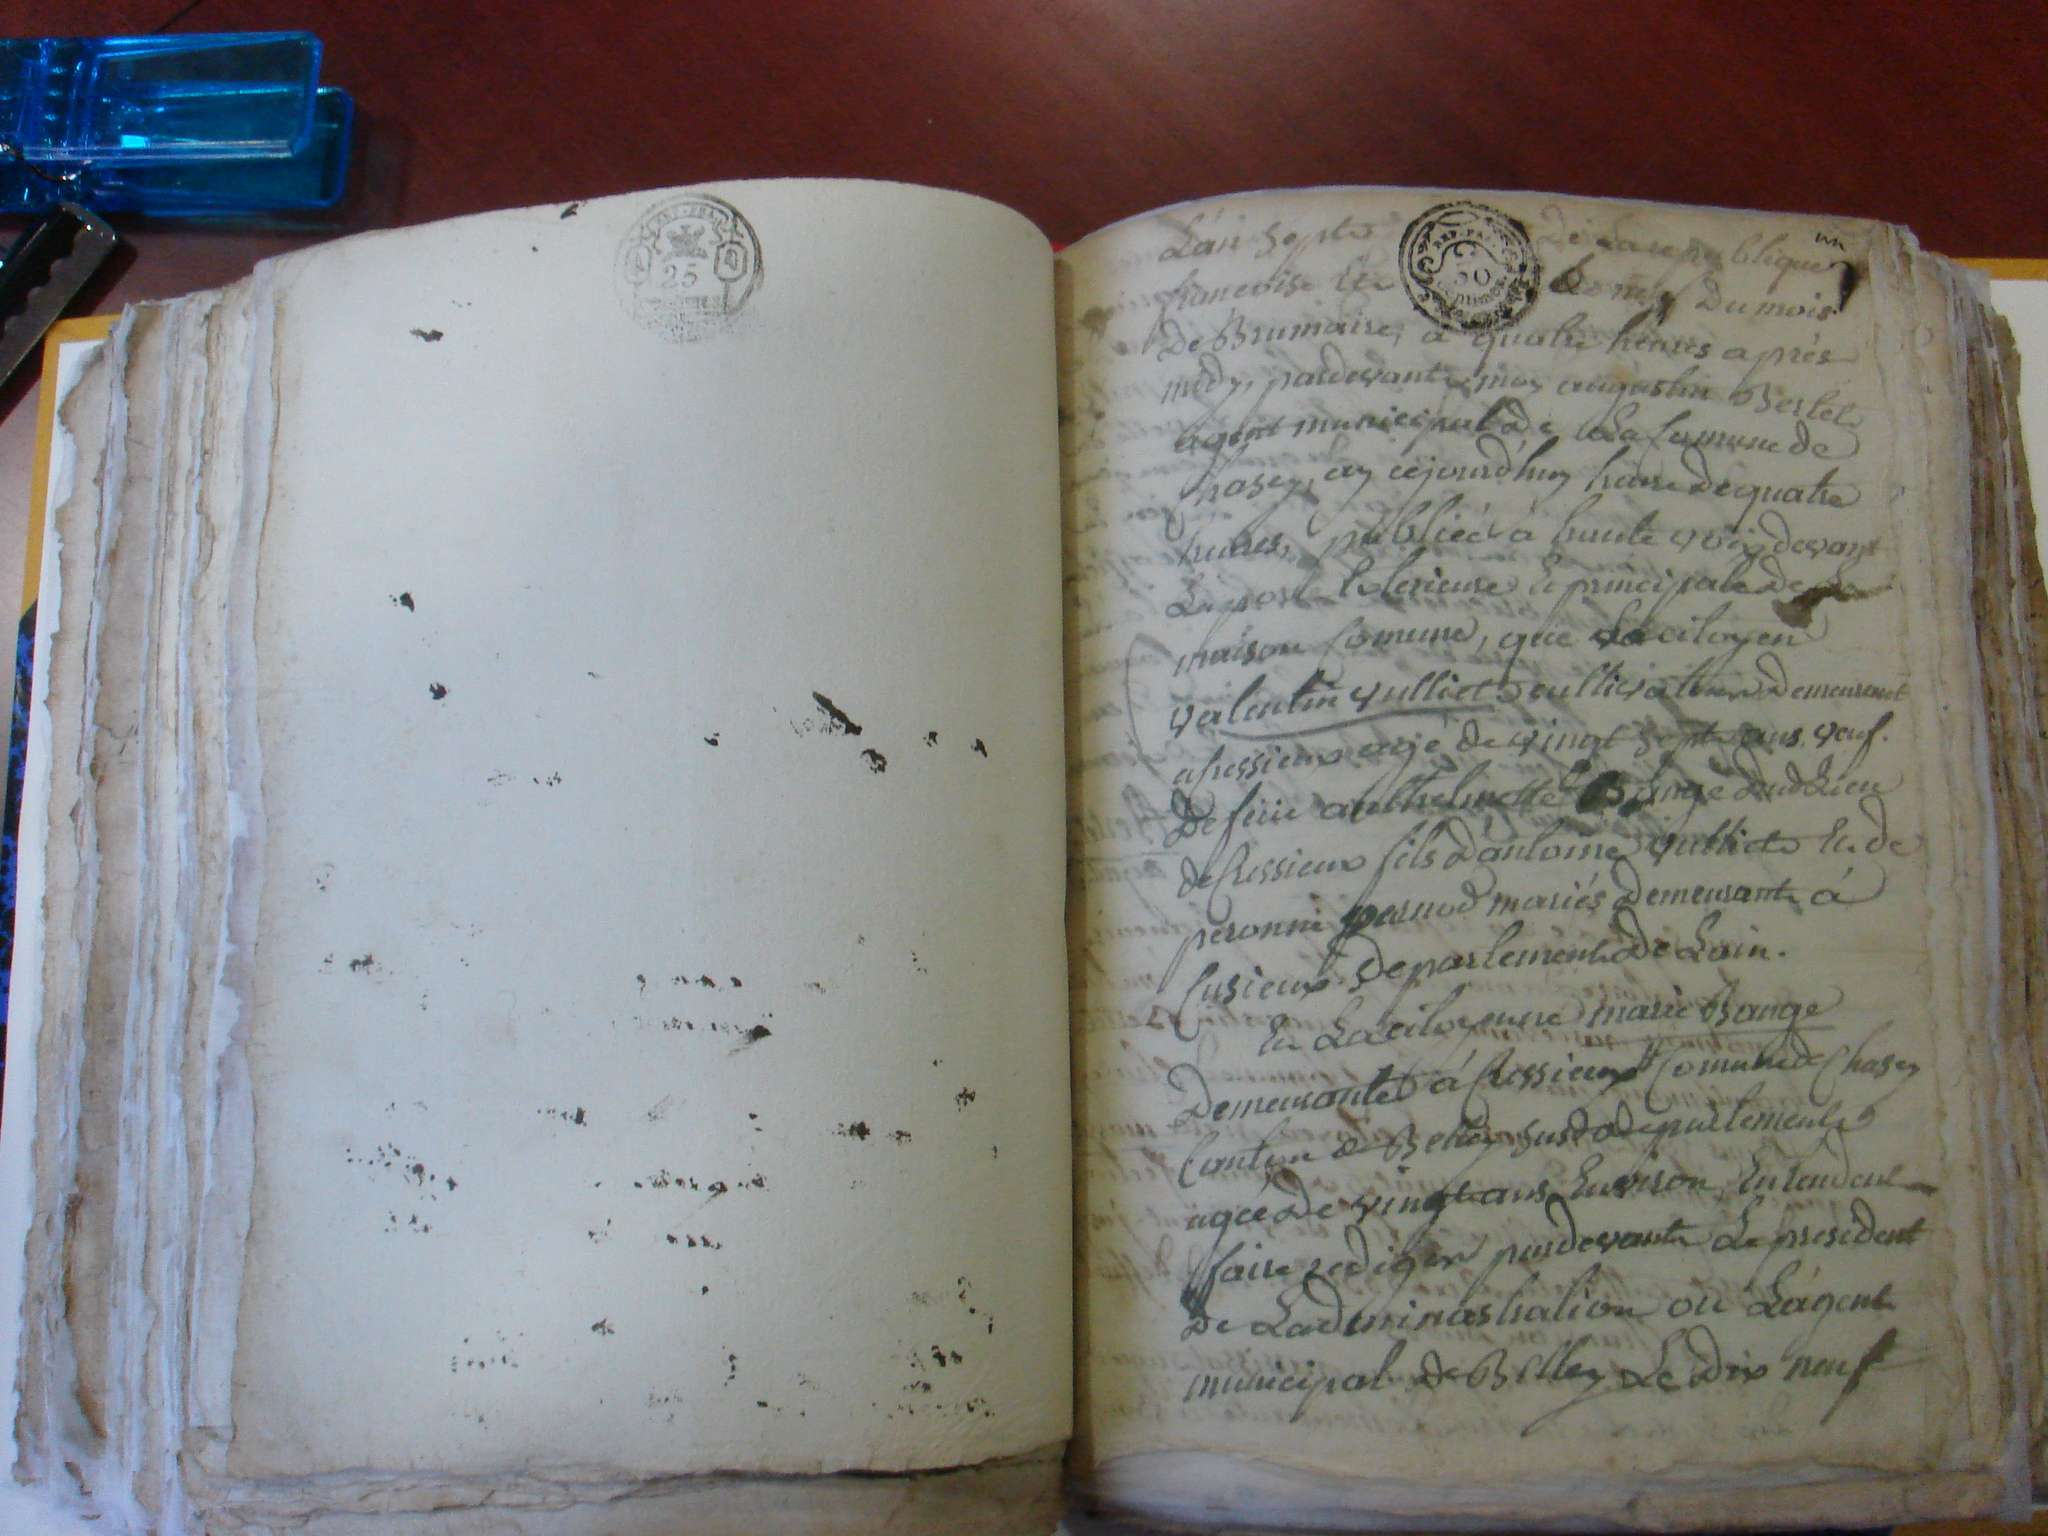 REP. FRA.
25
L'an septe de La republique
REP. FRA.
50
centimes
francoise le du mois
de Brumaire, a quatre heures aprés
midy, pardevant moy augustin Berlet
agent municipal de La Comune de
Chasey, ay cejourd'huy heure de quatre
heures, publiéé à haute voix devant
La porte Exterieure Et principale de la
maison Comune, que Le citoyen
valentin vulliet cultivateur demeurant
a Cressieux agé de vingt sept ans, veuf
De feue anthelmette Bange dud Lieu
de Cressieux fils d'antoine vulliet Et de
peronne pernod mariés demeurant à
Cusieux departement de Lain.
Et La citoyenne marie Bange
demeurante à Cressieux Comune de Chasey
Canton de Belley susd departement
agée de vingt ans Environ, Entendent
faire rediger pardevant Le president
de Ladminastration ou L'agent
municipal de Belley Le dix neuf